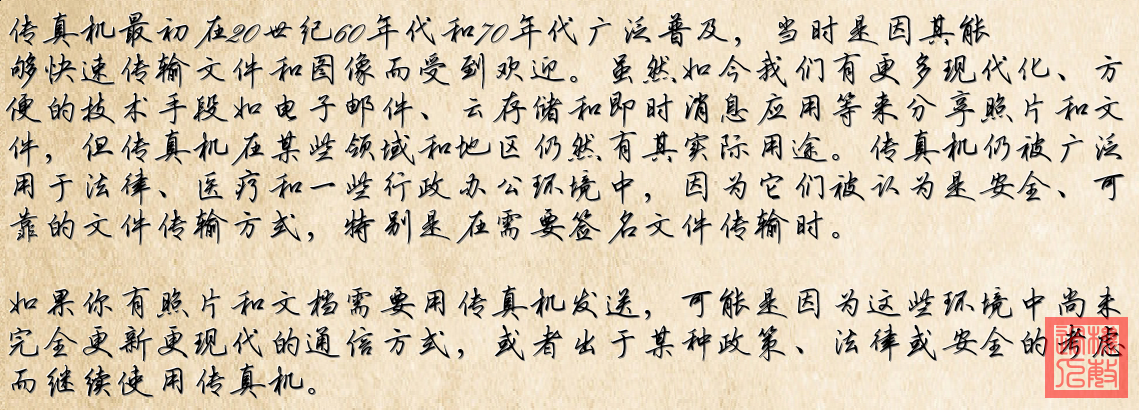 传真机最初在20世纪60年代和70年代广泛普及，当时是因其能
够快速传输文件和图像而受到欢迎。虽然如今我们有更多现代化、方
便的技术手段如电子邮件、云存储和即时消息应用等来分享照片和文
件，但传真机在某些领域和地区仍然有其实际用途。传真机仍被广泛
用于法律、医疗和一些行政办公环境中，因为它们被认为是安全、可
靠的文件传输方式，特别是在需要签名文件传输时。
如果你有照片和文档需要用传真机发送，可能是因为这些环境中尚未
完全更新更现代的通信方式，或者出于某种政策、法律或安全的考虑
而继续使用传真机。